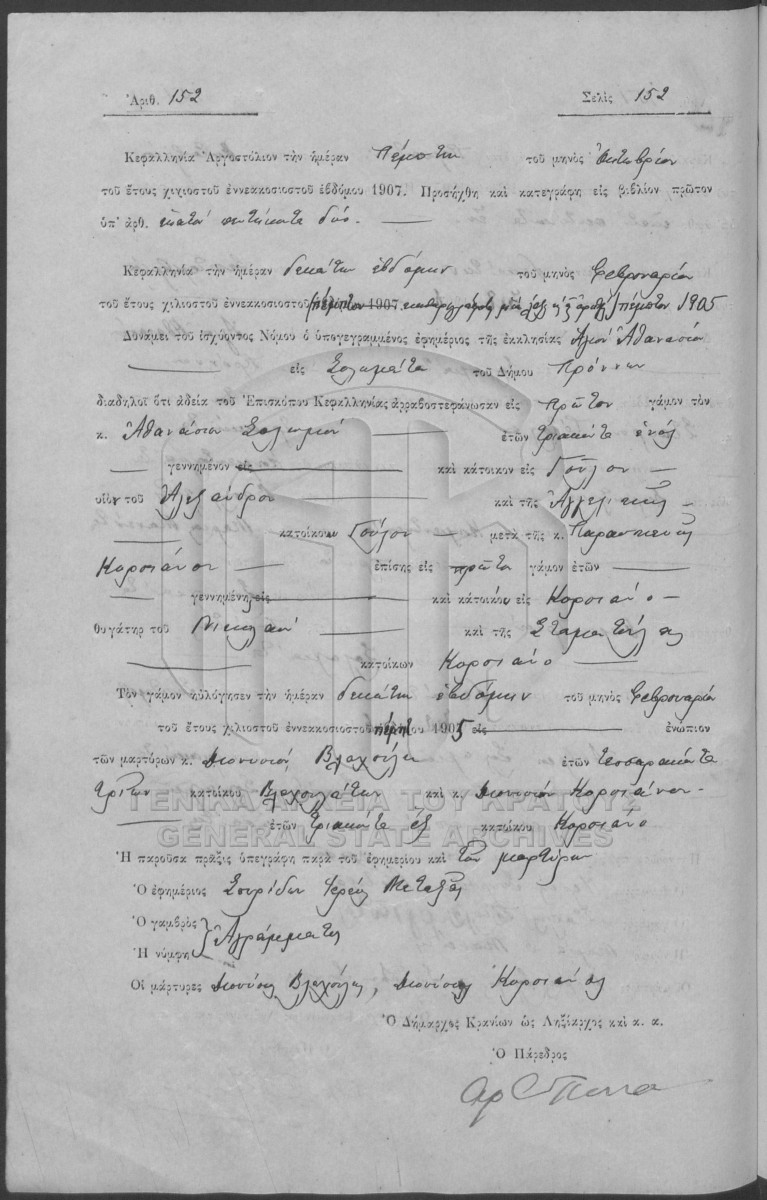 Ἀριθ. 152 Σελὶς 152
Κεφαλληνία Ἀργοστόλιον τὴν ἡμέραν Πέμπτην τοῦ μηνὸς Ὀκτωβρίου
τοῦ ἔτους χιλιοστοῦ ἐννεακοσιοστοῦ ἑβδόμου 1907. Προσήχθη καὶ κατεγράφη εἰς βιβλίον πρῶτον
ὑπ' ἀριθ. ἑκατὸν πεντήκοντα δύο.
Κεφαλληνία τὴν ἡμέραν δεκάτην ἑβδόμην τοῦ μηνὸς Φεβρουαρίου
τοῦ ἔτους χιλιοστοῦ ἐννεακοσιοστοῦ πέμπτου 1907 πέμπτου 1905
Δυνάμει τοῦ ἰσχύοντος Νόμου ὁ ὑπογεγραμμένος ἐφημέριος τῆς ἐκκλησίας Ἁγίου Ἀθανασίου
εἰς τοῦ Δήμου Πρόννων
διαδηλοῖ ὅτι ἀδείᾳ τοῦ Ἐπισκόπου Κεφαλληνίας ἀρραβοστεφάνωσαν εἰς Πρῶτον γάμον τὸν
κ. Ἀθανάσιον Σολωμόν ἐτῶν τριάκοντα ἑνός
γεννημένον εἰς καὶ κάτοικον εἰς
υἱὸν τοῦ Ἀλεξάνδρου καὶ τῆς Ἀγγελικῆς
κατοίκων μετὰ τῆς κ. Παρασκευῆς
Κοργιάνου ἐπίσης εἰς πρῶτον γάμον ἐτῶν
γεννημένη εἰς καὶ κάτοικον εἰς Κοργιάνο
θυγάτηρ τοῦ Νικολάου καὶ τῆς Σταματούλας
κατοίκων Κοργιάνο
Τὸν γάμον ηὐλόγησεν τὴν ἡμέραν δεκάτην ἑβδόμην τοῦ μηνὸς Φεβρουαρίου
τοῦ ἔτους χιλιοστοῦ ἐννεακοσιοστοῦ πέμπτου 1905 εἰς ἐνώπιον
τῶν μαρτύρων κ. Διονυσίου Βλαχούλη ἐτῶν τεσσαράκοντα
τριῶν κατοίκου Βλαχουλάτων καὶ κ. Διονυσίου Κοργιάνου
ἐτῶν τριάκοντα ἕξ κατοίκου Κοργιάνο
ΓΕΝΙΚΑ ΑΡΧΕΙΑ ΤΟΥ ΚΡΑΤΟΥΣ
GENERAL STATE ARCHIVES
Ἡ παροῦσα πρᾶξις ὑπεγράφη παρὰ τοῦ ἐφημερίου καὶ τῶν μαρτύρων
Ὁ ἐφημέριος Σπυρίδων Ἱερεὺς Μεταξᾶς
Ὁ γαμβρὸς
Ἀγράμματοι
Ἡ νύμφη
Οἱ μάρτυρες Διονύσιος Βλαχούλης, Διονύσιος Κοργιάνος
Ὁ Δήμαρχος Κρανίων ὡς Ληξίαρχος καὶ κ. α.
Ὁ Πάρεδρος